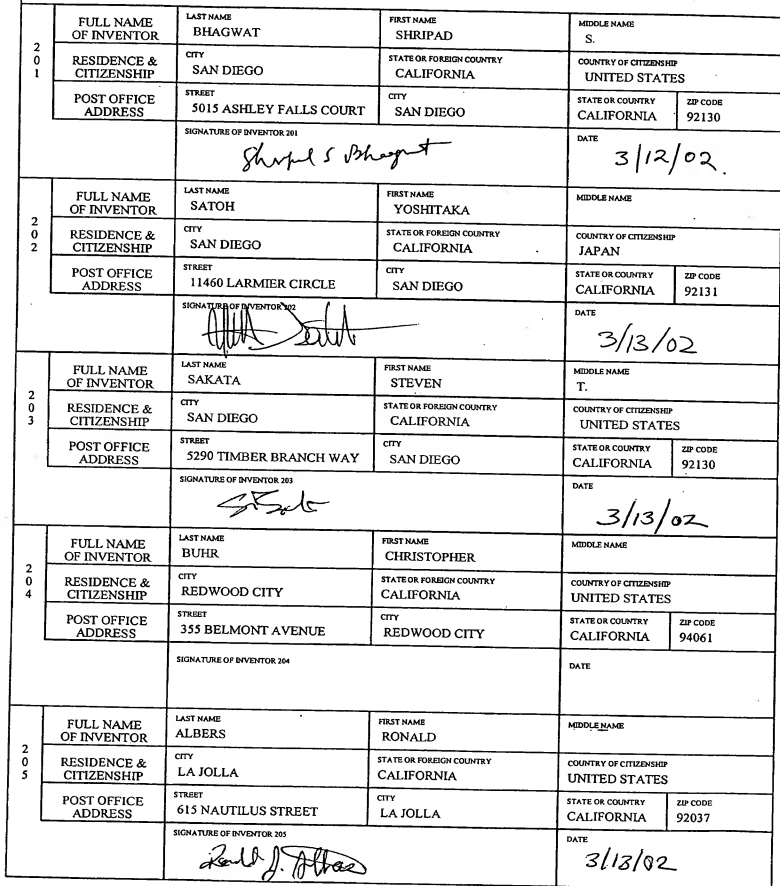 FULL NAME OF INVENTOR LAST NAME BHAGWAT FIRST NAME SHRIPAD MIDDLE NAME S.
201 RESIDENCE & CITIZENSHIP CITY SAN DIEGO STATE OR FOREIGN COUNTRY CALIFORNIA COUNTRY OF CITIZENSHIP UNITED STATES
POST OFFICE ADDRESS STREET 5015 ASHLEY FALLS COURT CITY SAN DIEGO STATE OR COUNTRY CALIFORNIA ZIP CODE 92130
SIGNATURE OF INVENTOR 201 DATE
3/12/02.
FULL NAME OF INVENTOR LAST NAME SATOH FIRST NAME YOSHITAKA MIDDLE NAME
202 RESIDENCE & CITIZENSHIP CITY SAN DIEGO STATE OR FOREIGN COUNTRY CALIFORNIA COUNTRY OF CITIZENSHIP JAPAN
POST OFFICE ADDRESS STREET 11460 LARMIER CIRCLE CITY SAN DIEGO STATE OR COUNTRY CALIFORNIA ZIP CODE 92131
SIGNATURE OF INVENTOR 202 DATE
3/13/02
FULL NAME OF INVENTOR LAST NAME SAKATA FIRST NAME STEVEN MIDDLE NAME T.
203 RESIDENCE & CITIZENSHIP CITY SAN DIEGO STATE OR FOREIGN COUNTRY CALIFORNIA COUNTRY OF CITIZENSHIP UNITED STATES
POST OFFICE ADDRESS STREET 5290 TIMBER BRANCH WAY CITY SAN DIEGO STATE OR COUNTRY CALIFORNIA ZIP CODE 92130
SIGNATURE OF INVENTOR 203 DATE
3/13/02
FULL NAME OF INVENTOR LAST NAME BUHR FIRST NAME CHRISTOPHER MIDDLE NAME
204 RESIDENCE & CITIZENSHIP CITY REDWOOD CITY STATE OR FOREIGN COUNTRY CALIFORNIA COUNTRY OF CITIZENSHIP UNITED STATES
POST OFFICE ADDRESS STREET 355 BELMONT AVENUE CITY REDWOOD CITY STATE OR COUNTRY CALIFORNIA ZIP CODE 94061
SIGNATURE OF INVENTOR 204 DATE
FULL NAME OF INVENTOR LAST NAME ALBERS FIRST NAME RONALD MIDDLE NAME
205 RESIDENCE & CITIZENSHIP CITY LA JOLLA STATE OR FOREIGN COUNTRY CALIFORNIA COUNTRY OF CITIZENSHIP UNITED STATES
POST OFFICE ADDRESS STREET 615 NAUTILUS STREET CITY LA JOLLA STATE OR COUNTRY CALIFORNIA ZIP CODE 92037
SIGNATURE OF INVENTOR 205 DATE
3/13/02